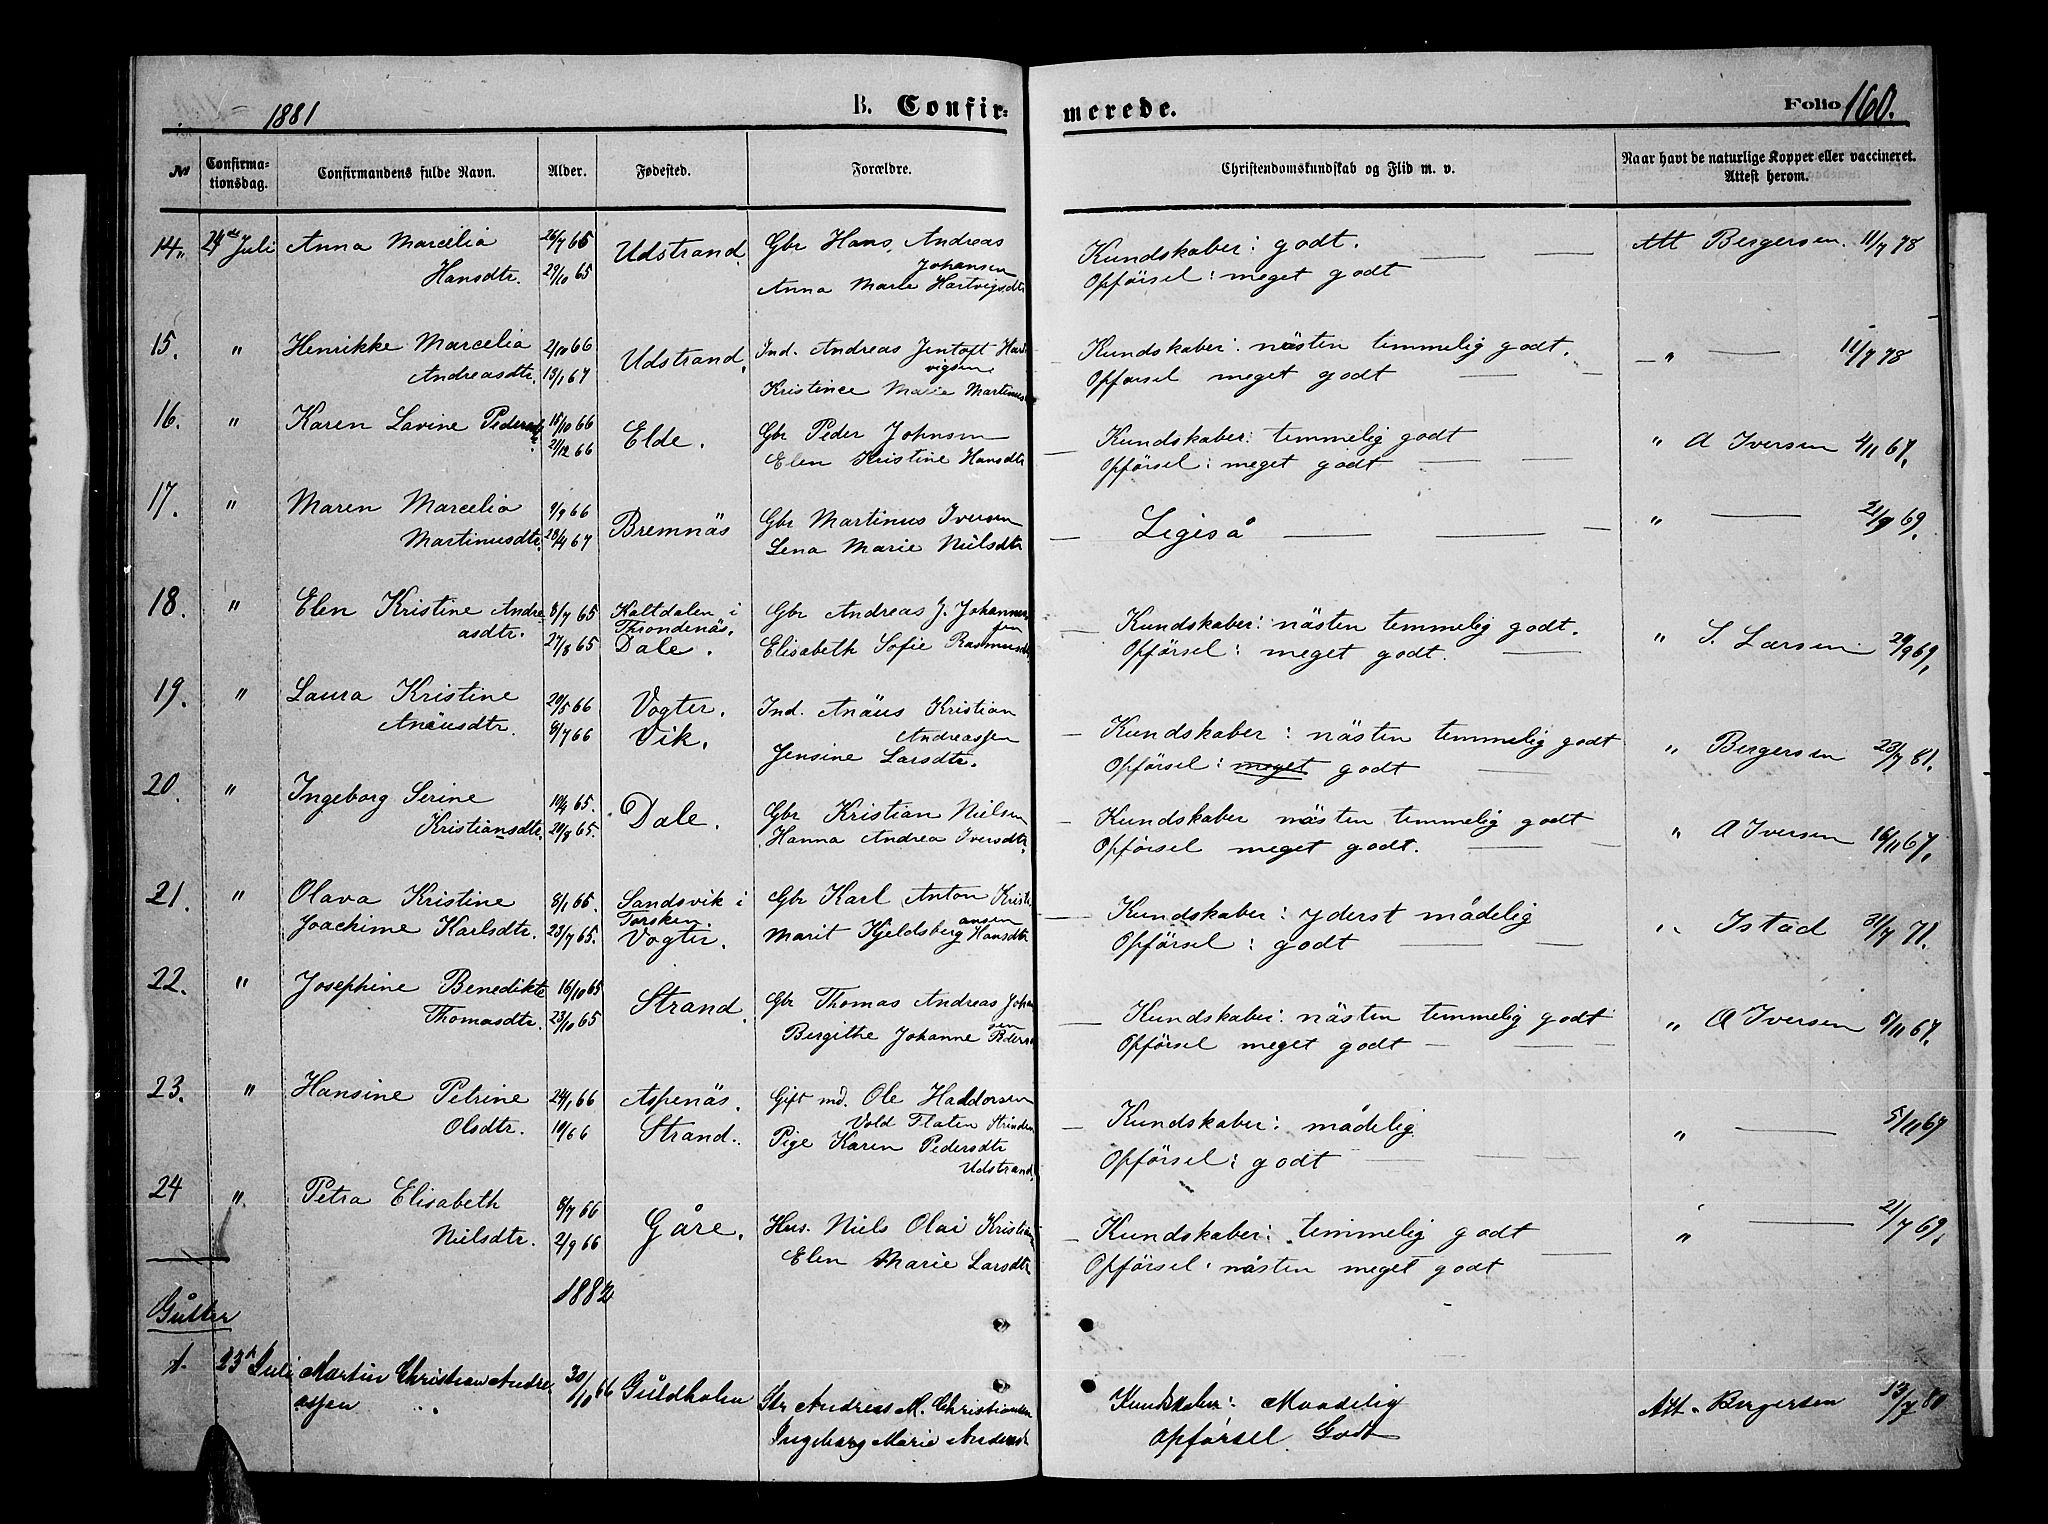 1881
B. Confir-
merede.
Folio 160.
№
Confirma-
tionsdag.
Confirmandens fulde Navn.
Alder.
Fødested.
Forældre.
Christendomskundskab og Flid m. v.
Naar havt de naturlige Kopper eller vaccineret.
Attest herom.
14. 24de Juli Anna Marcelia 26/7 65 Udstrand. Gbr Hans Andreas Kundskaber: godt. Att Bergersen. 11/7 78
Hansdtr. 29/10 65 Johansen Opförsel: meget godt
Anna Marie Hartvigsdtr
15. " Henrikke Marcelia 2/10 66 Udstrand. Ind. Andreas Jentoft Hart Kundskaber: nästen temmelig godt. " 11/7 78
Andreasdtr. 13/1 67 vigsen Opförsel meget godt
Kristince Marie Martinus
16. " Karen Lavine Pedersdtr 15/10 66 Elde. Gbr Peder Johnsen Kundskaber: temmelig godt " A Iversen 4/11 67.
21/12 66 Elen Kristine Hansdtr Opförsel: meget godt
17. " Maren Marcelia 9/9 66 Bremnäs Gbr Martinus Iversen Ligeså " 21/9 69.
Martinusdtr. 28/4 67 Lena Marie Nielsdtr
18. " Elen Kristine Andre 8/7 65 Kaltdalen i Gbr Andreas J. Johannes Kundskaber: nästen temmelig godt. " S. Larsen 29/9 69.
asdtr. 27/8 65 Throndenäs. sen Opförsel: meget godt.
Dale. Elisabeth Sofie Rasmusdtr
19. " Laura Kristine 20/5 66 Vogter. Ind. Anäus Kristian Kundskaber: nästen temmelig godt " Bergersen 23/7 81.
Anäusdtr. 8/7 66 Vik. Andreassen Opförsel: meget godt
Jensine Larsdtr.
20. " Ingeborg Serine 10/4 65. Dale. Gbr Kristian Nielsen Kundskaber nästen temmelig godt " A Iversen 16/11 67.
Kristiansdtr. 20/8 65. Hanna Andrea Iversdtr. Opförsel meget godt.
21. " Olava Kristine 8/1 65. Sandsvik i Gbr Karl Anton Kristi Kundskaber: yderst mådelig " Istad 31/7 71.
Joachime Karlsdtr. 23/7 65. Torsken. ansen Opförsel: godt
Vogter. Marit Kjeldsberg Hansdtr
22. " Josephine Benedikte 16/10 65 Strand. Gbr Thomas Andreas Johan Kundskaber: nästen temmelig godt " A Iversen 5/11 67.
Thomasdtr. 23/10 65 sen Opförsel meget godt
Birgithe Johanne Peders
23. " Hansine Petrine 24/1 66 Aspenäs. Gift md. Ole Haddorsen Kundskaber: mådelig. " 5/11 67
Olsdtr. 10/ 66 Strand. Vold Flaten Strinden Opförsel: godt
Pige Karen Pedersdtr
Udstrand
24 " Petra Elisabeth 8/7 66 Gåre. Hus. Niels Olai Kristian Kundskaber: temmelig godt " 21/7 69.
Nielsdtr. 2/9 66 Elen Marie Larsdtr Opförsel: nästen meget godt
1882
Gutter
1. 23 Juli Martin Christian Andre 30/10 66 Guldholm Gbr Andreas M. Christiansen Kundskaber: Maadelig Att. Bergersen 13/7 80
assen Ingeborg Marie Andersdt Opførsel Godt